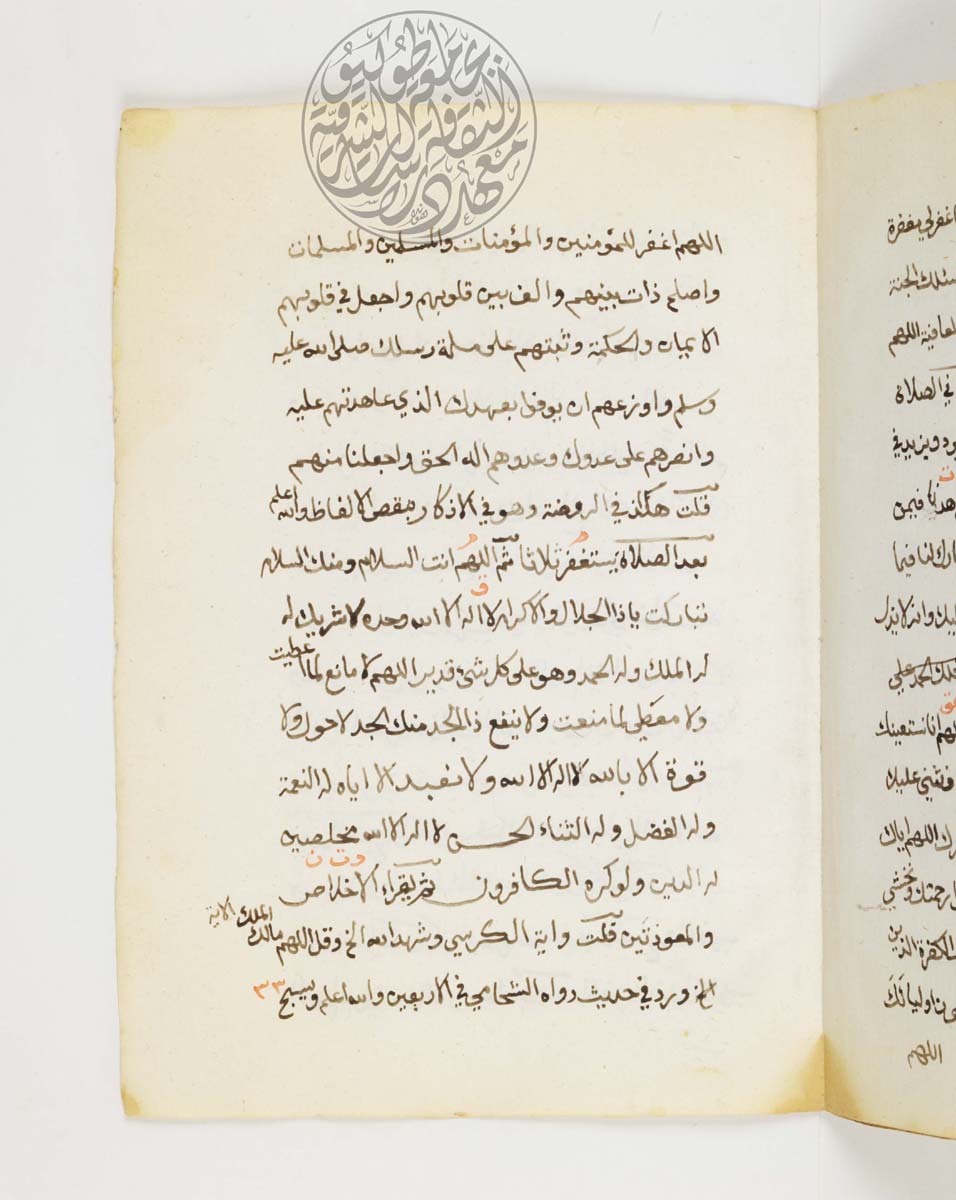 اللهم اغفر للمؤمنين والمؤمنات والمسلمين والمسلمات
واصلح ذات بينهم والف بين قلوبهم واجعل في قلوبهم
الايمان والحكمة وثبتهم على ملة رسلك صلى الله عليه
وسلم واوزعهم ان يوفوا بعهدك الذي عاهدتهم عليه
وانصرهم على عدوك وعدوهم اله الحق واجعلنا منهم
قلت هكذا في الروضة وهو في الاذكار بنقص الالفاظ والله اعلم
بعد الصلاة يستغفر ثلاثا ثم اللهم انت السلام ومنك السلام
تباركت ياذا الجلال والاكرام لا اله الا الله وحده لا شريك له
له الملك وله الحمد وهو على كل شئ قدير اللهم لا مانع لما اعطيت
ولا معطي لما منعت ولا ينفع ذا الجد منك الجد لا حول ولا
قوة الا بالله لا اله الا الله ولا نعبد الا اياه له النعمة
وله الفضل وله الثناء الحسن لا اله الا الله مخلصين
له الدين ولو كره الكافرون ثم يقراء الاخلاص
والمعوذتين قلت واية الكرسي وشهد الله الخ وقل اللهم مالك الملك الاية
الخ ورد في حديث رواه الشحامي في الاربعين والله اعلم ويسبح ٣٣
اغفر لي مغفرة
الجنة
اللهم
في الصلاة
ويزيد في
فيمن
بارك لنا فيما
وانه لا يذل
فلك الحمد على
انا نستعينك
ونثني عليك
اللهم اياك
رحمتك ونخشى
الكفرة الذين
اوليائك
اللهم
معهد دراسات الثقافة الشرقية بجامعة طوكيو